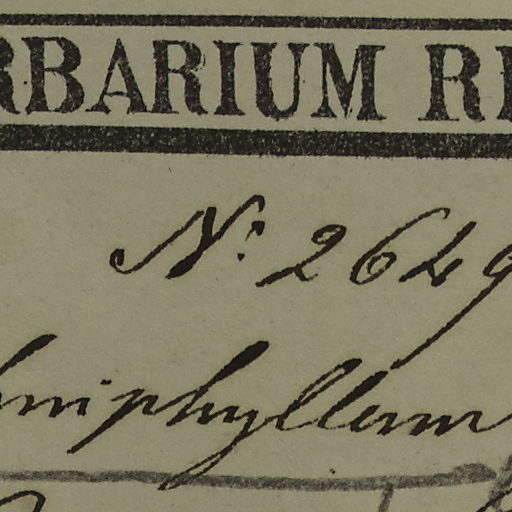 RBARIUM R
N: 2649
niphyllum